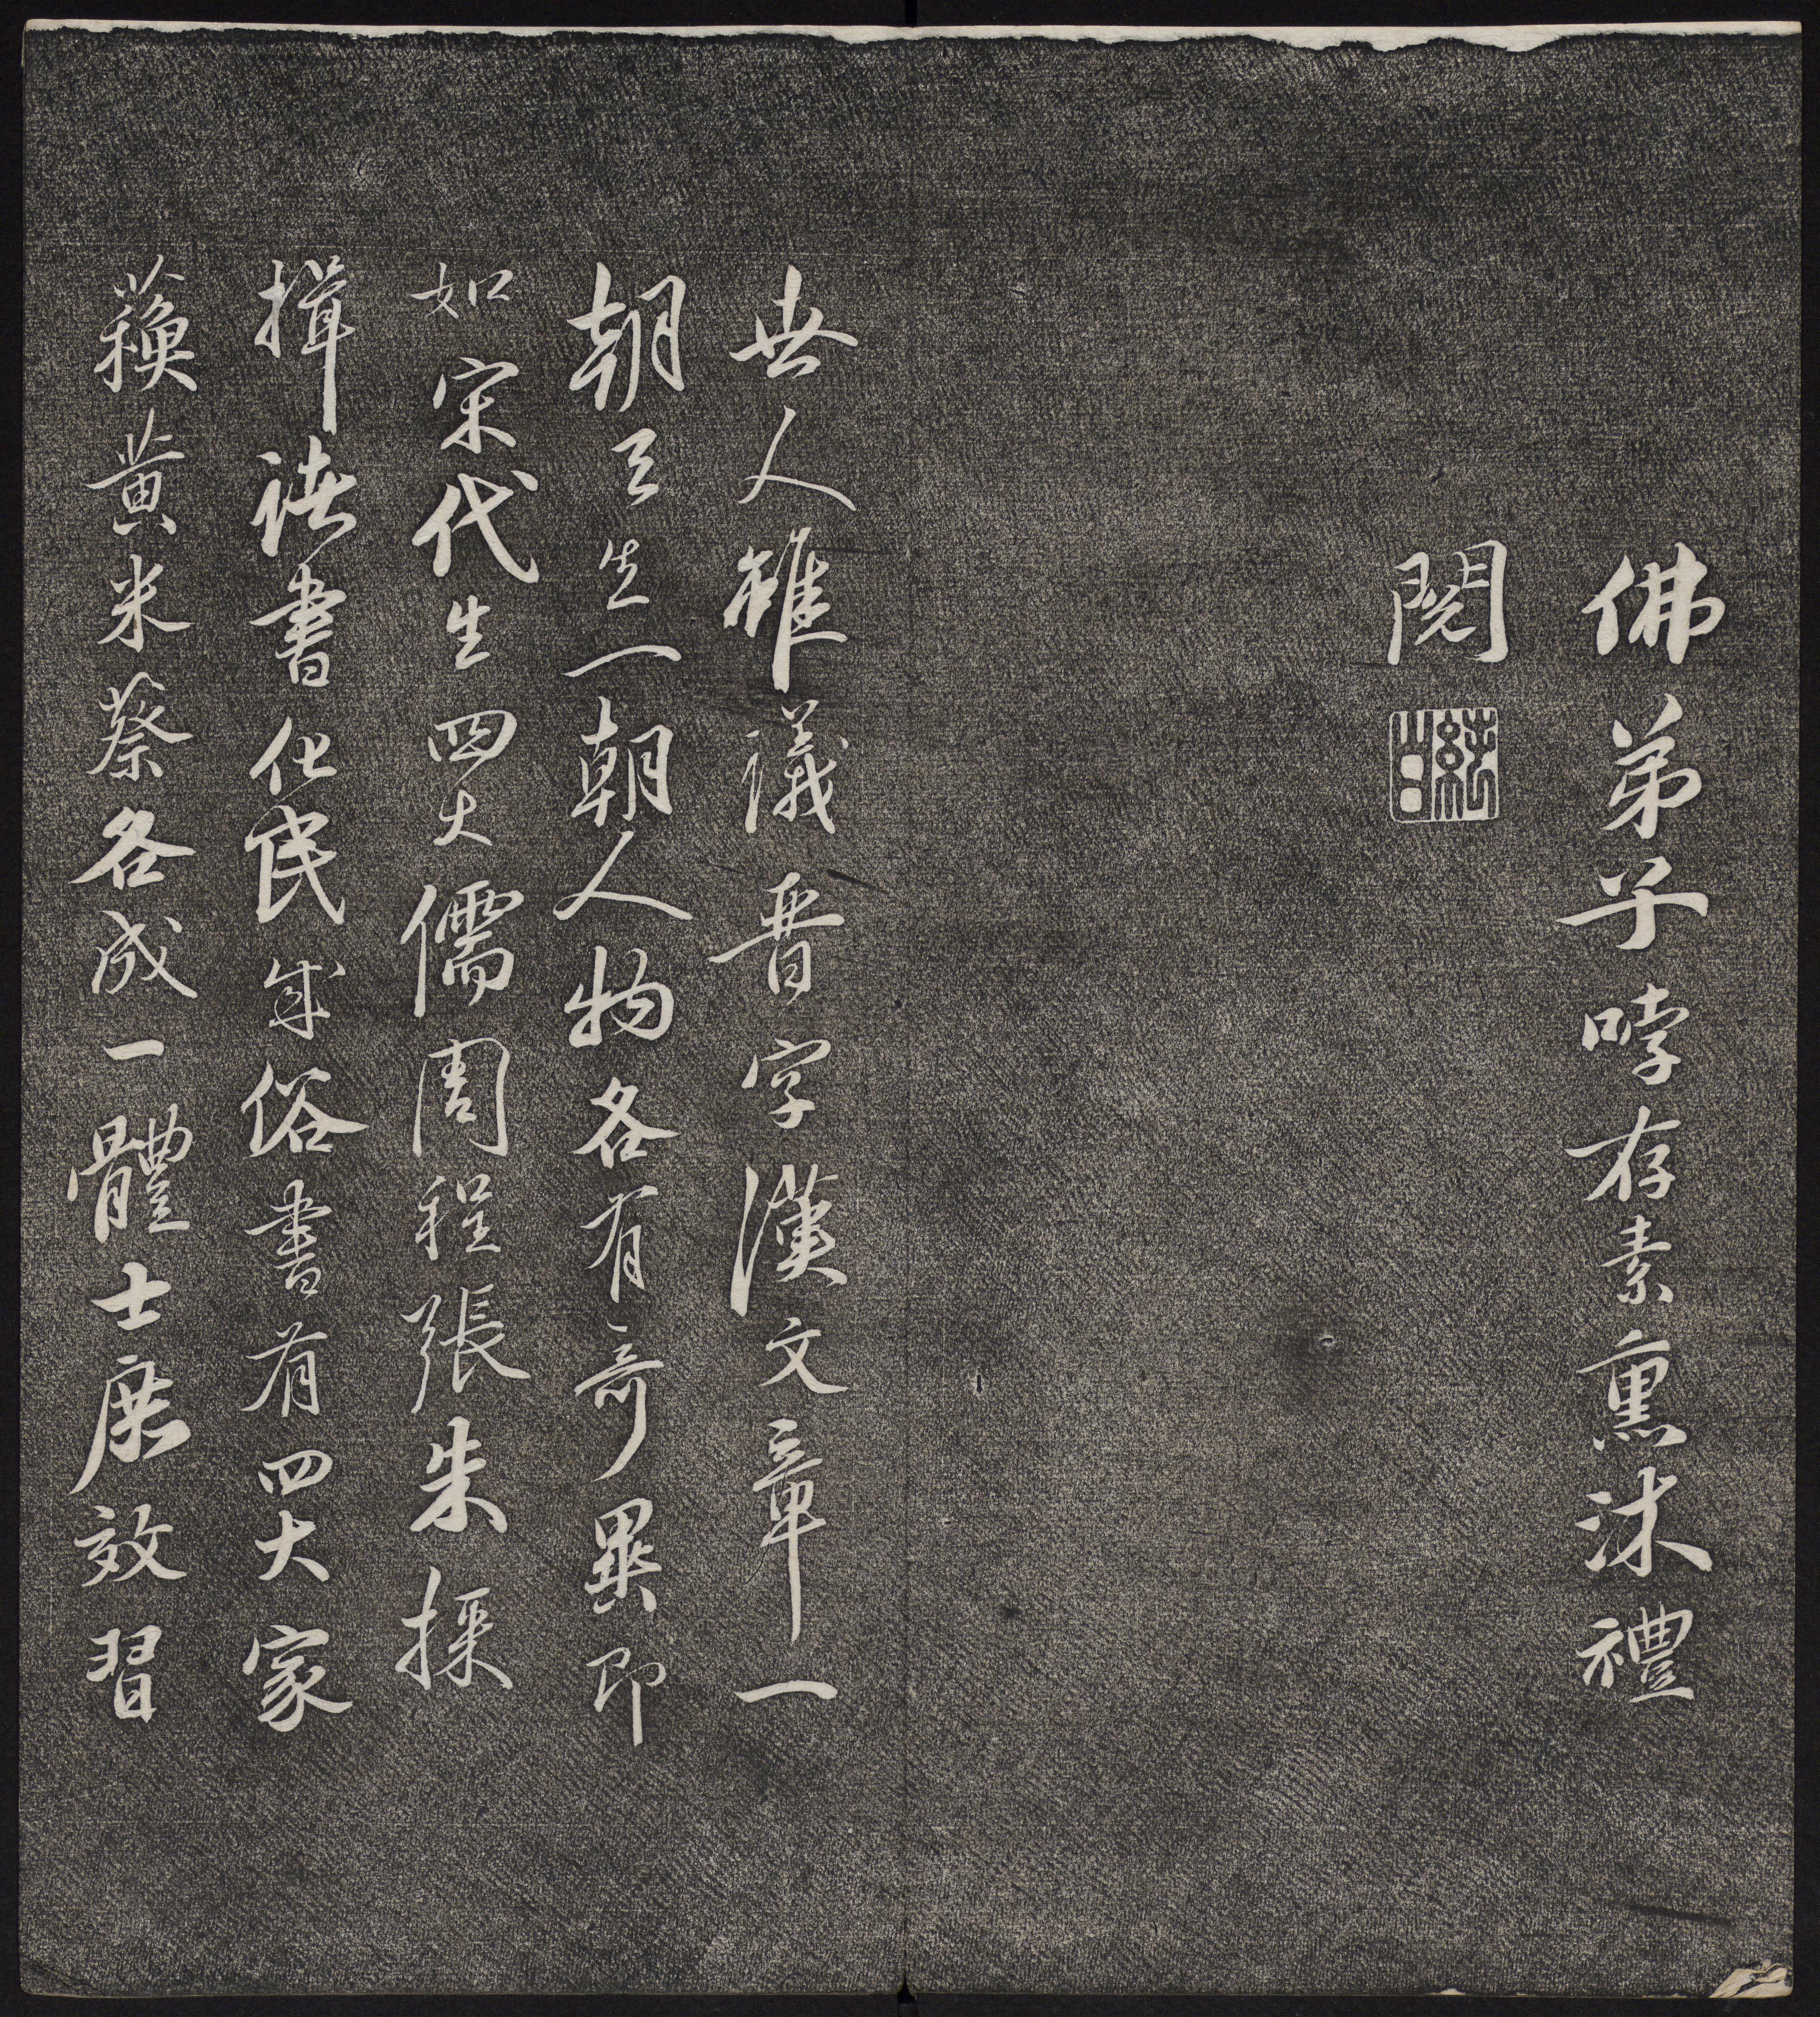 佛弟子哱存素熏沐禮
閱
世人雖議晋字漢文章一
朝之生一朝人物各有奇異即
如宋代生四大儒周程張朱採
揖諸書化民成俗書有四大家
蘓黄米蔡各成一體士庶效習